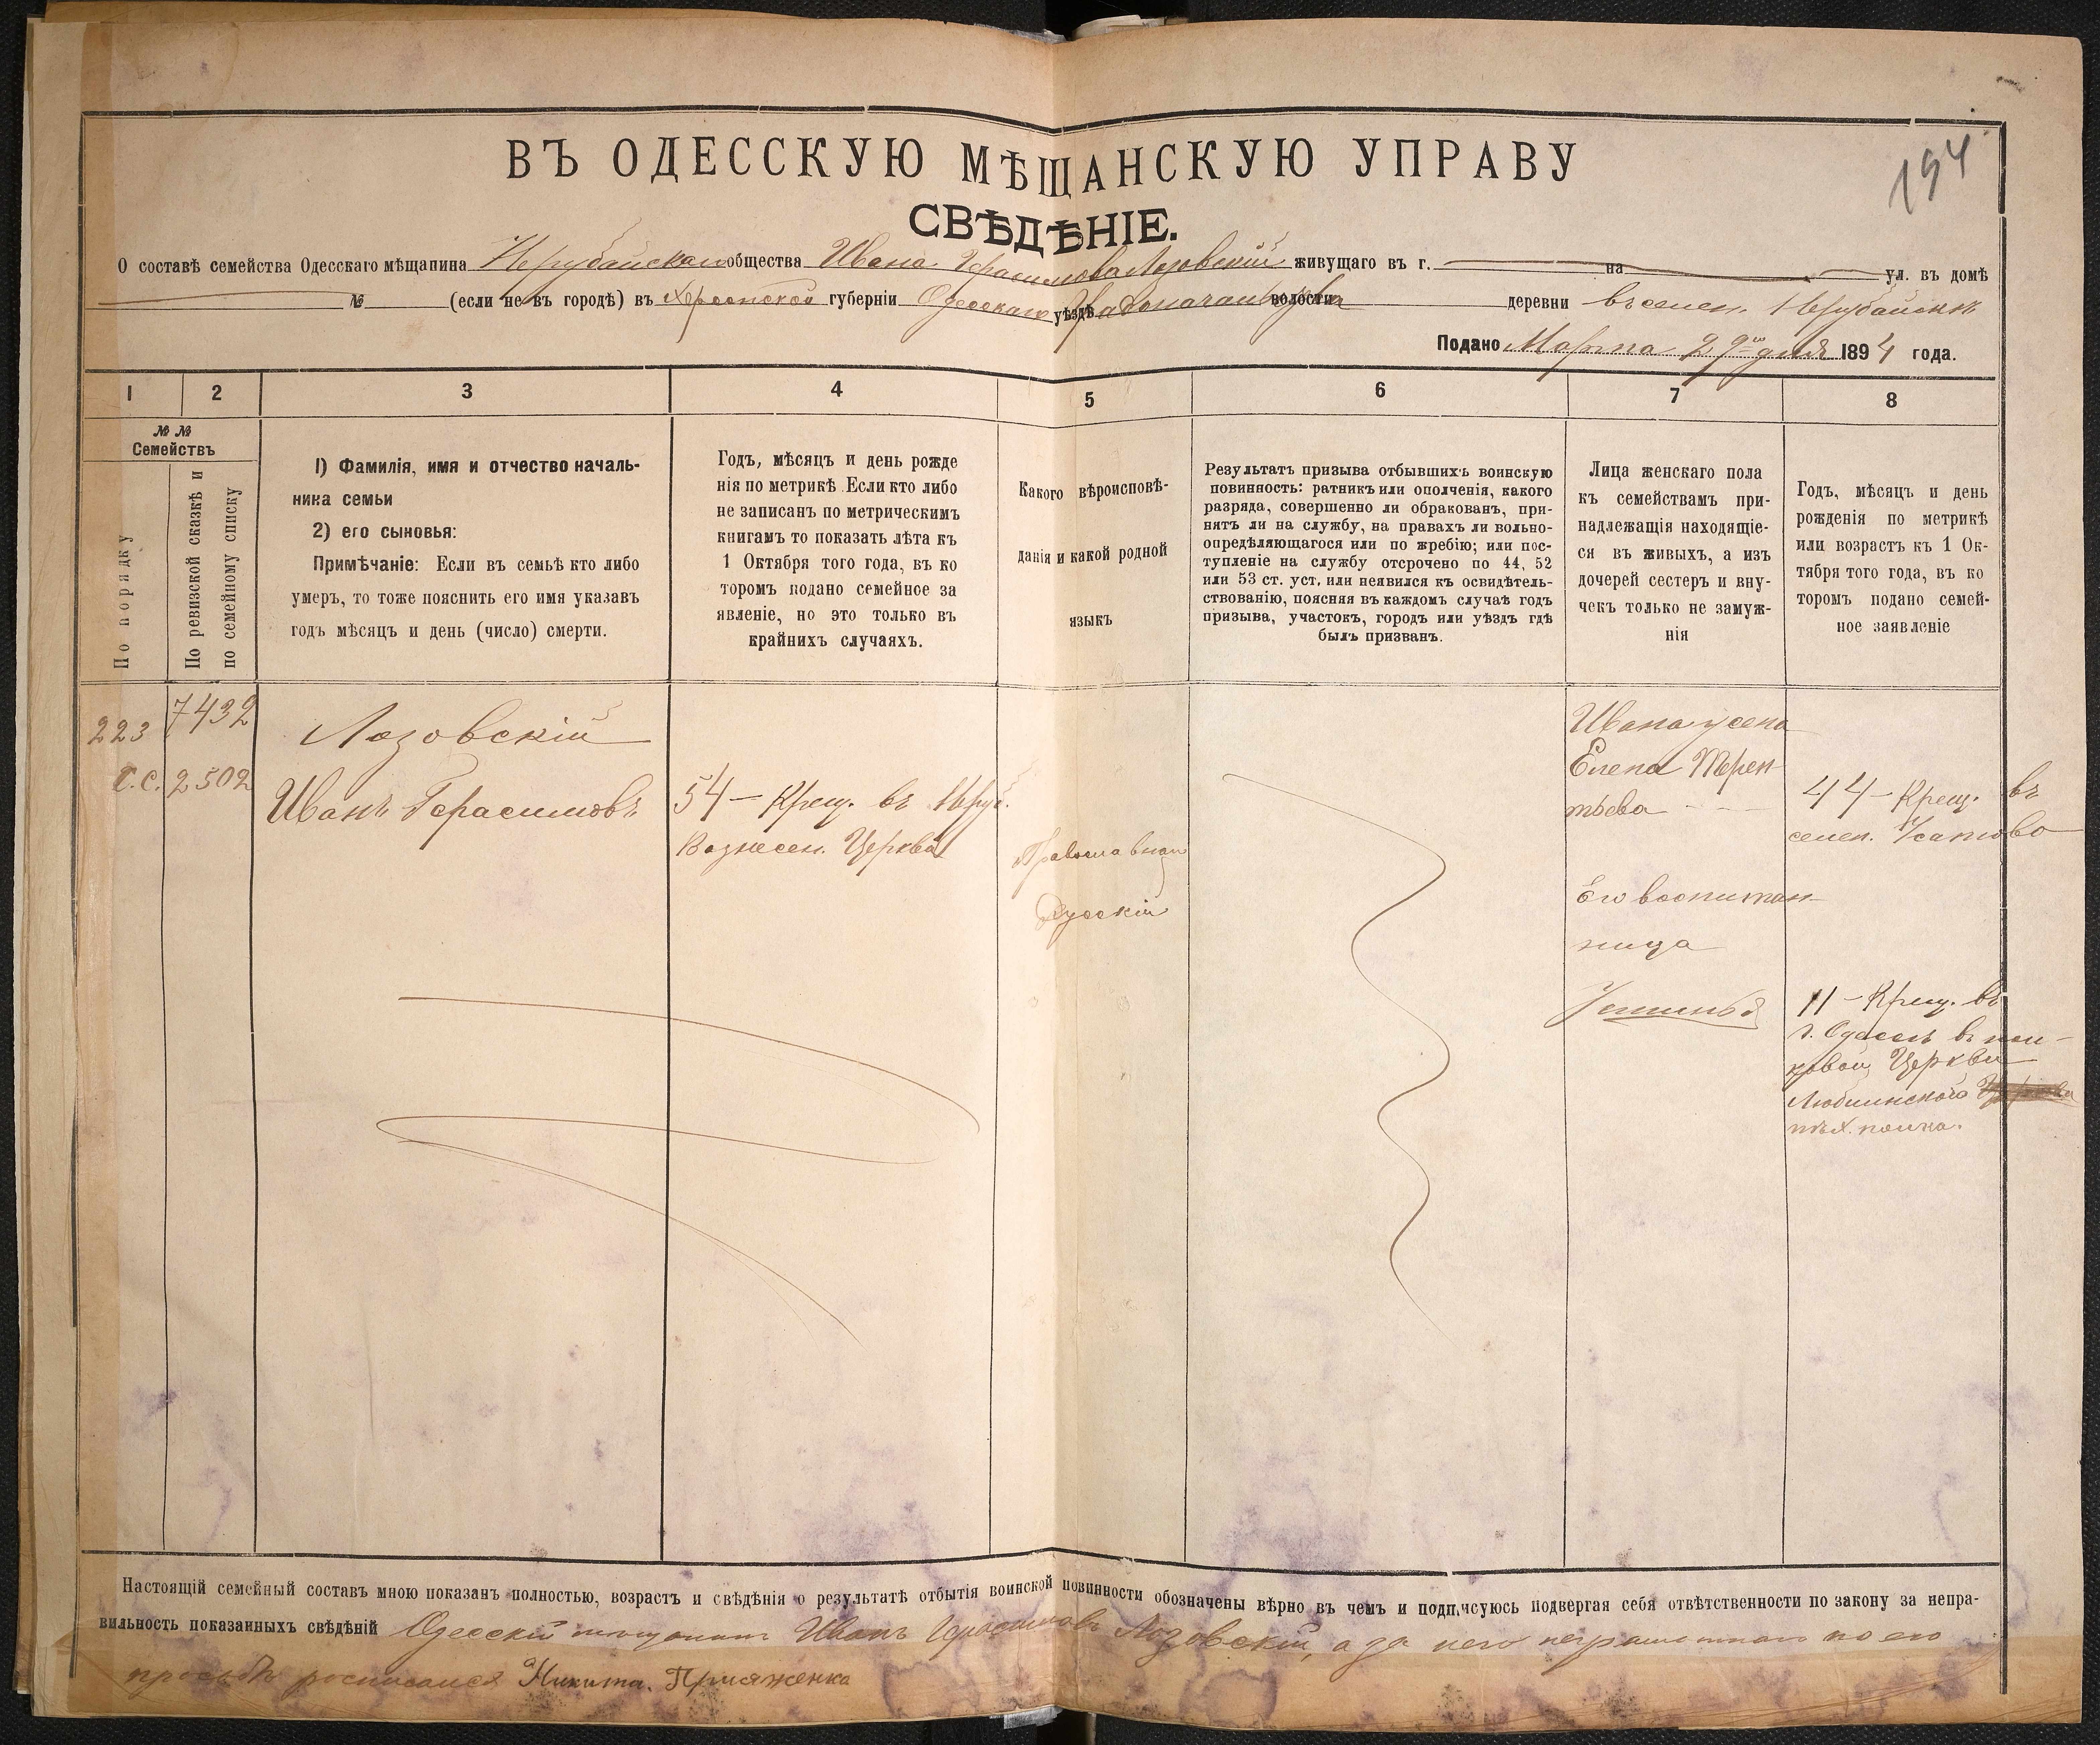 194
ВЪ ОДЕССКУЮ МѢЩАНСКУЮ УПРАВУ
СВѢДѢНІЕ.
О составѣ семейства Одесскаго мѣщанина Нерубайскаго общества Ивана Герасимова Лозовскій живущаго въ г. на ул. въ домѣ
№ (если не въ городѣ) въ Херсонской губерніи Одесскаго уѣзда Градоначальства волости деревни въ селен. Нерубайскѣ
Подано Марта 29го дня 1894 года.
1 2 3 4 5 6 7 8
№ №
Семействъ
По порядку
По ревизской сказкѣ и
по семейному списку
1) Фамилія, имя и отчество началь-
ника семьи
2) его сыновья:
Примѣчаніе: Если въ семьѣ кто либо
умеръ, то тоже пояснить его имя указавъ
годъ мѣсяцъ и день (число) смерти.
Годъ, мѣсяцъ и день рожде
нія по метрикѣ. Если кто либо
не записанъ по метрическимъ
книгамъ то показать лѣта къ
1 Октября того года, въ ко
торомъ подано семейное за
явленіе, но это только въ
крайнихъ случаяхъ.
Какого вѣроисповѣ-
данія и какой родной
языкъ
Результатъ призыва отбывшихъ воинскую
повинность: ратникъ или ополченія, какого
разряда, совершенно ли обракованъ, при-
нятъ ли на службу, на правахъ ли вольно-
опредѣляющагося или по жребію; или пос-
тупленіе на службу отсрочено по 44, 52
или 53 ст. уст. или неявился къ освидѣтель-
ствованію, поясняя въ каждомъ случаѣ годъ
призыва, участокъ, городъ или уѣздъ гдѣ
былъ призванъ.
Лица женскаго пола
къ семействамъ при-
надлежащія находящіе-
ся въ живыхъ, а изъ
дочерей сестеръ и вну-
чекъ только не замуж-
нія
Годъ, мѣсяцъ и день
рожденія по метрикѣ
или возрастъ къ 1 Ок-
тября того года, въ ко
торомъ подано семей-
ное заявленіе
223 7432
С.С. 2502
Лозовскій
Иванъ Герасимовъ
54 – Крещ. въ Неруб.
Вознесен. Церкви
Православная
Русскій
Ивана жена
Елена Терен-
тьева
44 – Крещ. въ
селен. Усатово
Его воспитан-
ница
Устинья
11 – Крещ. въ
г. Одессѣ въ пол-
ковой Церкви
Люблинскаго
пѣх. полка.
Настоящій семейный составъ мною показанъ полностью, возрастъ и свѣдѣнія о результатѣ отбытія воинской повинности обозначены вѣрно въ чемъ и подписуюсь подвергая себя отвѣтственности по закону за непра-
вильность показанныхъ свѣдѣній Одесскій мещанинъ Иванъ Герасимовъ Лозовскій, а за него неграмотнаго по его
просьбѣ росписался Никита Присяженка